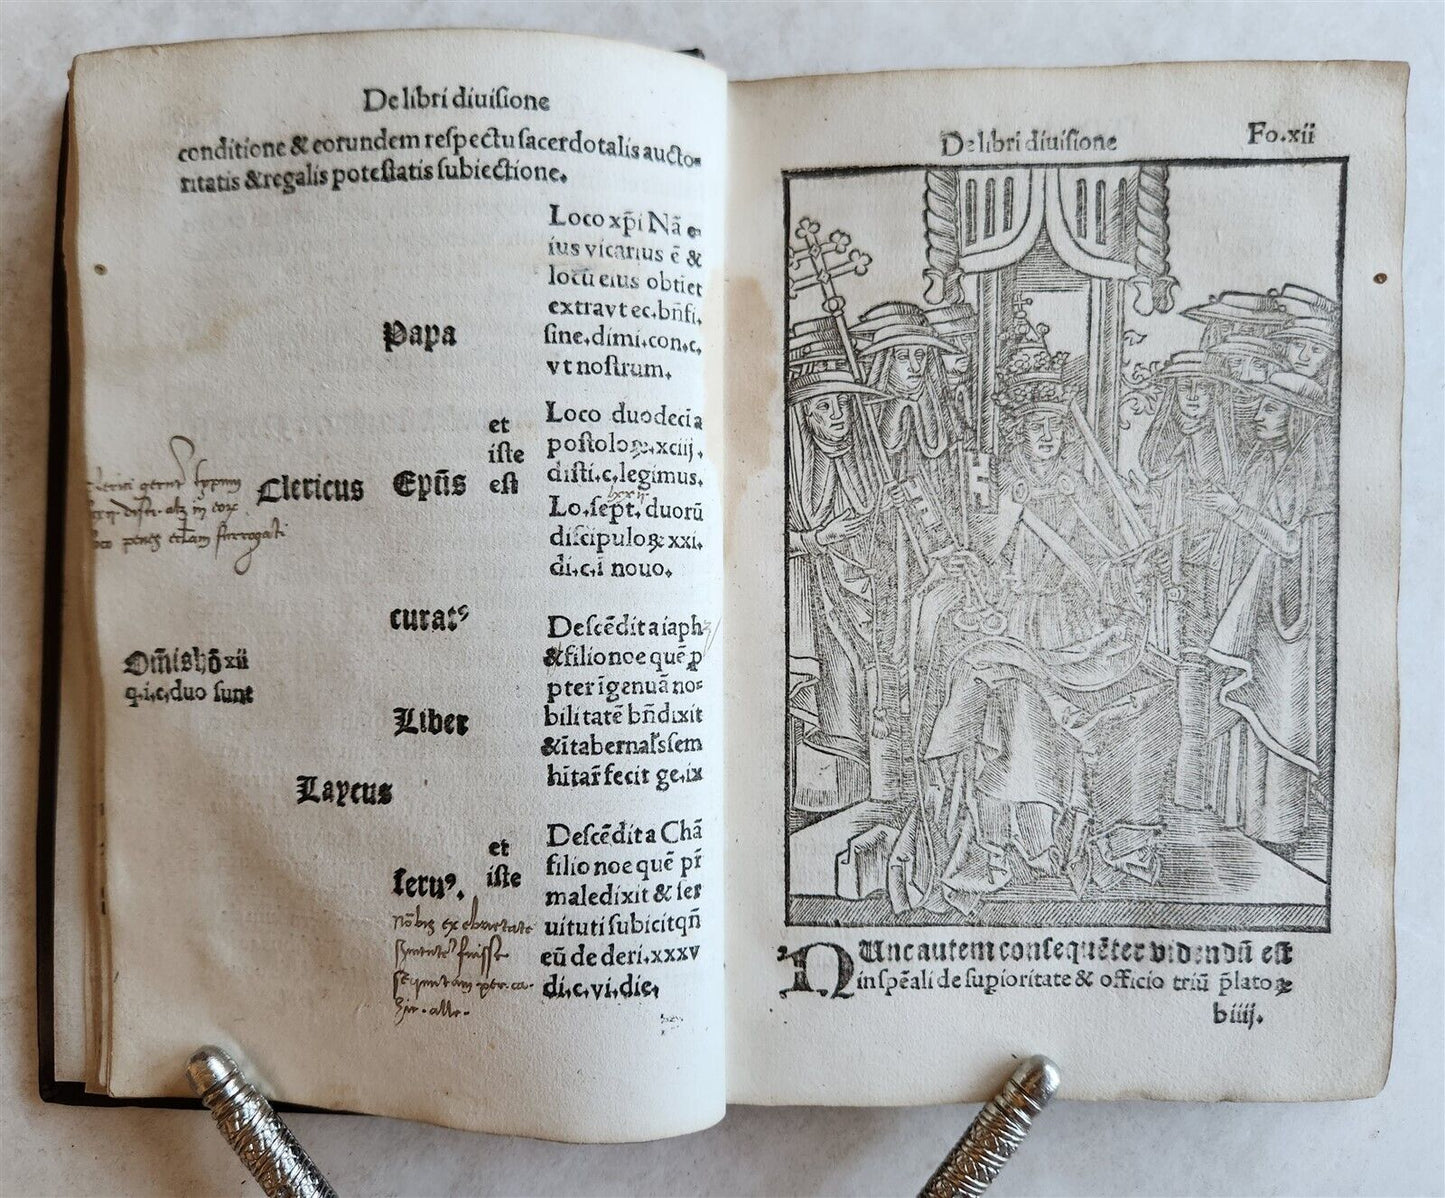 De libri diuiſione
conditione & eorundem reſpectu ſacerdotalis aucto⸗
ritatis & regalis poteſtatis ſubiectione.
Papa
Loco xp̄i Nā e⸗
ius vicarius ē &
locū eius obtiet
extra vt ec. bn̄fi.
ſine. dimi. con. c.
vt noſtrum.
Clericus Ep̄us
et
iſte
eſt
Loco duodeci a
poſtoloꝝ. xciij.
diſti. c. legimus.
Lo. ſept. duorū
diſcipuloꝝ xxi.
di. c. ī nouo.
curatꝰ
Om̄is hō xii
q. i. c. duo ſunt
Liber
Deſcēdit a iaph
& filio noe quē ꝓ
pter īgenuā no⸗
bilitatē bn̄dixit
& ī tabernaľs ſem
hītar̄ fecit ge. ix
Laycus
ſeruꝰ.
et
iſte
Deſcēdit a Chā
filio noe quē pr̄
maledixit & ſer
uituti ſubicit qn̄
eū de deri. xxxv
di. c. vi. die.
De libri diuiſione
Fo. xii
NUnc autem conſequēter videndū eſt
in ſpēali de ſupioritate & officio triū p̄latoꝝ
b iiij.